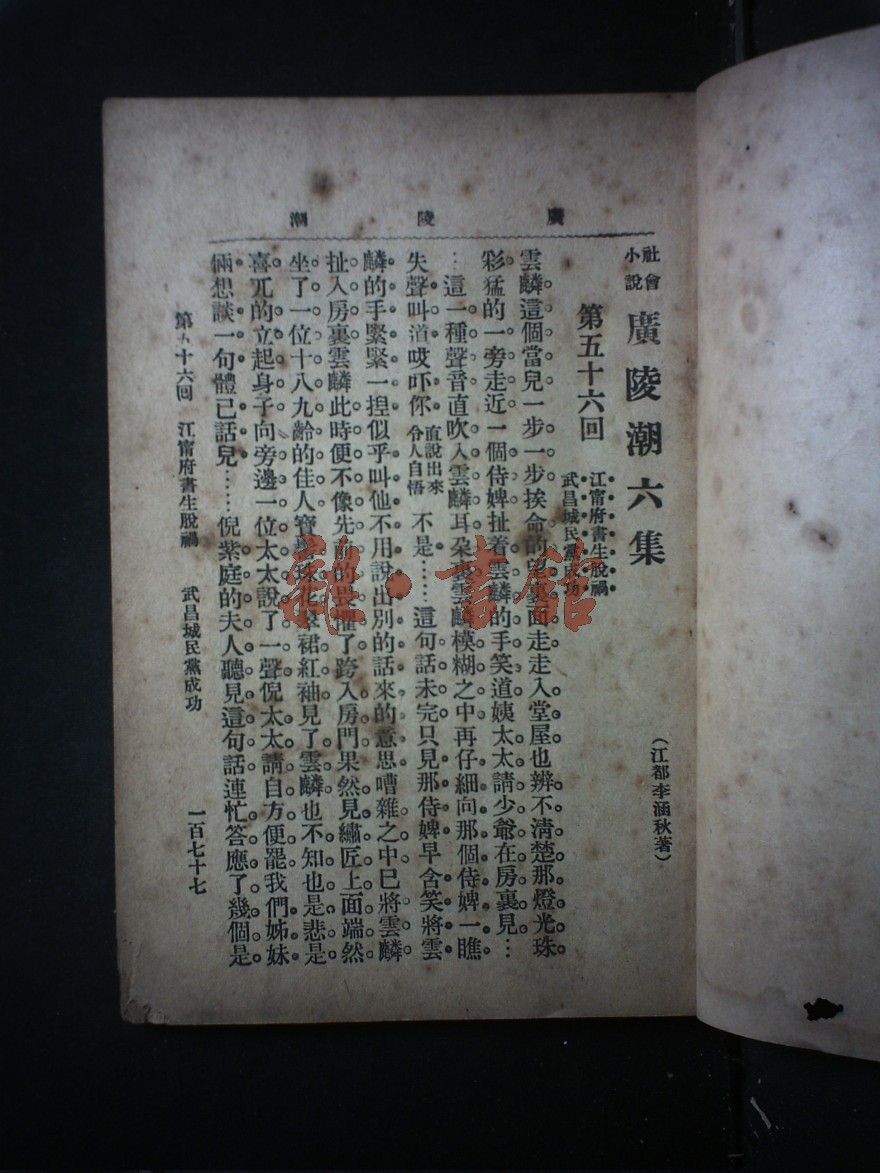 廣陵潮
社會小說 廣陵潮六集
（江都李涵秋著）
第五十六回
江甯府書生脫禍
武昌城民黨成功
雲麟這個當兒一步一步挨命的望裏面走走入堂屋也辨不清楚那燈光珠
彩猛的一旁走近一個侍婢扯着雲麟的手笑道姨太太請少爺在房裏見…
…這一種聲音直吹入雲麟耳朵裏雲麟模糊之中再仔細向那個侍婢一瞧
失聲叫道哎吓你直說出來令人自悟不是……這句話未完只見那侍婢早含笑將雲
麟的手緊緊一揑似乎叫他不用說出別的話來的意思嘈雜之中已將雲麟
扯入房裏雲麟此時便不像先前的畏懼了跨入房門果然見繡匠上面端然
坐了一位十八九齡的佳人寶髻珠花翠裙紅袖見了雲麟也不知也是悲是
喜兀的立起身子向旁邊一位太太說了一聲倪太太請自方便罷我們姊妹
倆想談一句體已話兒……倪紫庭的夫人聽見這句話連忙答應了幾個是
第五十六回 江甯府書生脫禍 武昌城民黨成功 一百七十七
龍書館